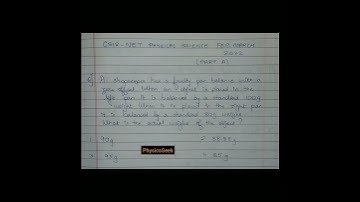 CSIR-NET PHYSICAL SCIENCE FEB MARCH
2022
(PART A)
Q) A shopkeeper has a faulty pan balance with a
zero offset. When an object is placed in the
left pan it is balanced by a standard 100g
weight. When it is placed in the right pan
it is balanced by a standard 80g weight.
What is the actual weight of the object?
PhysicsGeek